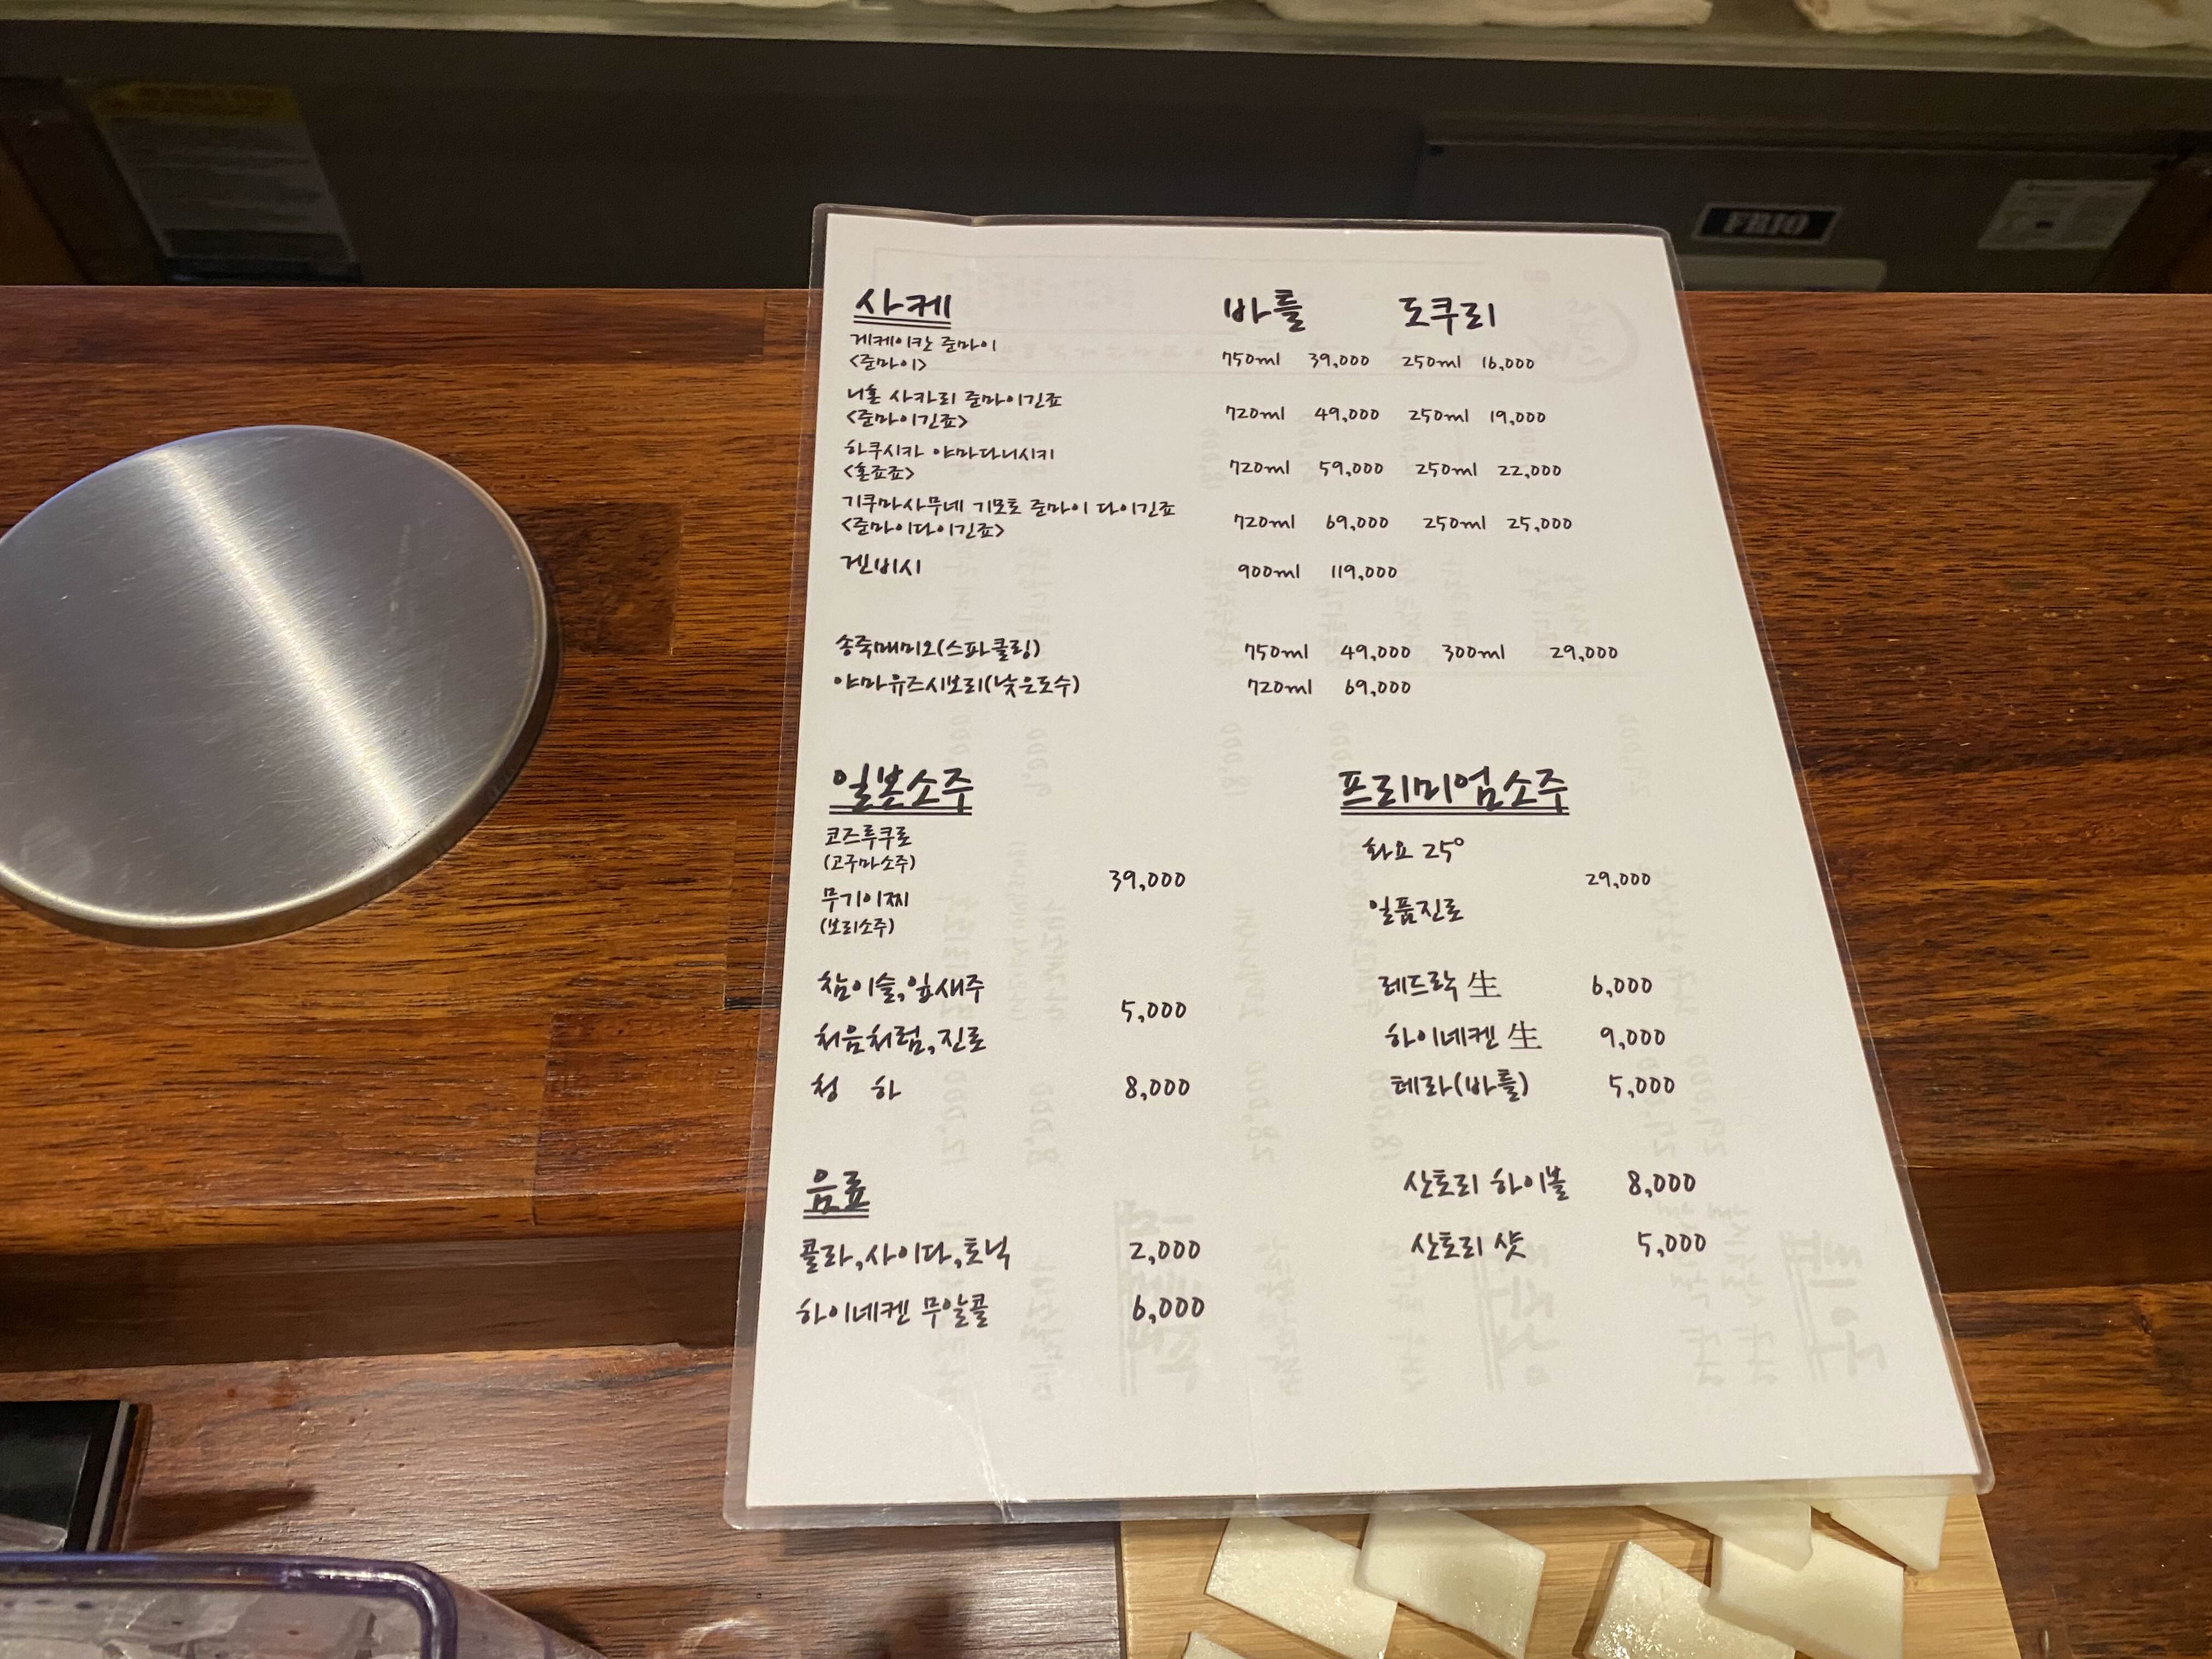 FRIO
사케 바틀 도쿠리
게케이칸 준마이
<준마이> 750ml 39,000 250ml 16,000
니혼 사카리 준마이긴죠
<준마이긴죠> 720ml 49,000 250ml 19,000
하쿠시카 야마다니시키
<혼죠죠> 720ml 59,000 250ml 22,000
기쿠마사무네 기모토 준마이 다이긴죠
<준마이다이긴죠> 720ml 69,000 250ml 25,000
겐비시 900ml 119,000
송죽매미오(스파클링) 750ml 49,000 300ml 29,000
야마유즈시보리(낮은도수) 720ml 69,000
일본소주
코즈루쿠로
(고구마소주)
39,000
무기이찌
(보리소주)
참이슬,잎새주
5,000
처음처럼,진로
청 하 8,000
음료
콜라,사이다,토닉 2,000
하이네켄 무알콜 6,000
프리미엄소주
화요 25°
29,000
일품진로
레드락 生 6,000
하이네켄 生 9,000
테라(바틀) 5,000
산토리 하이볼 8,000
산토리 샷 5,000